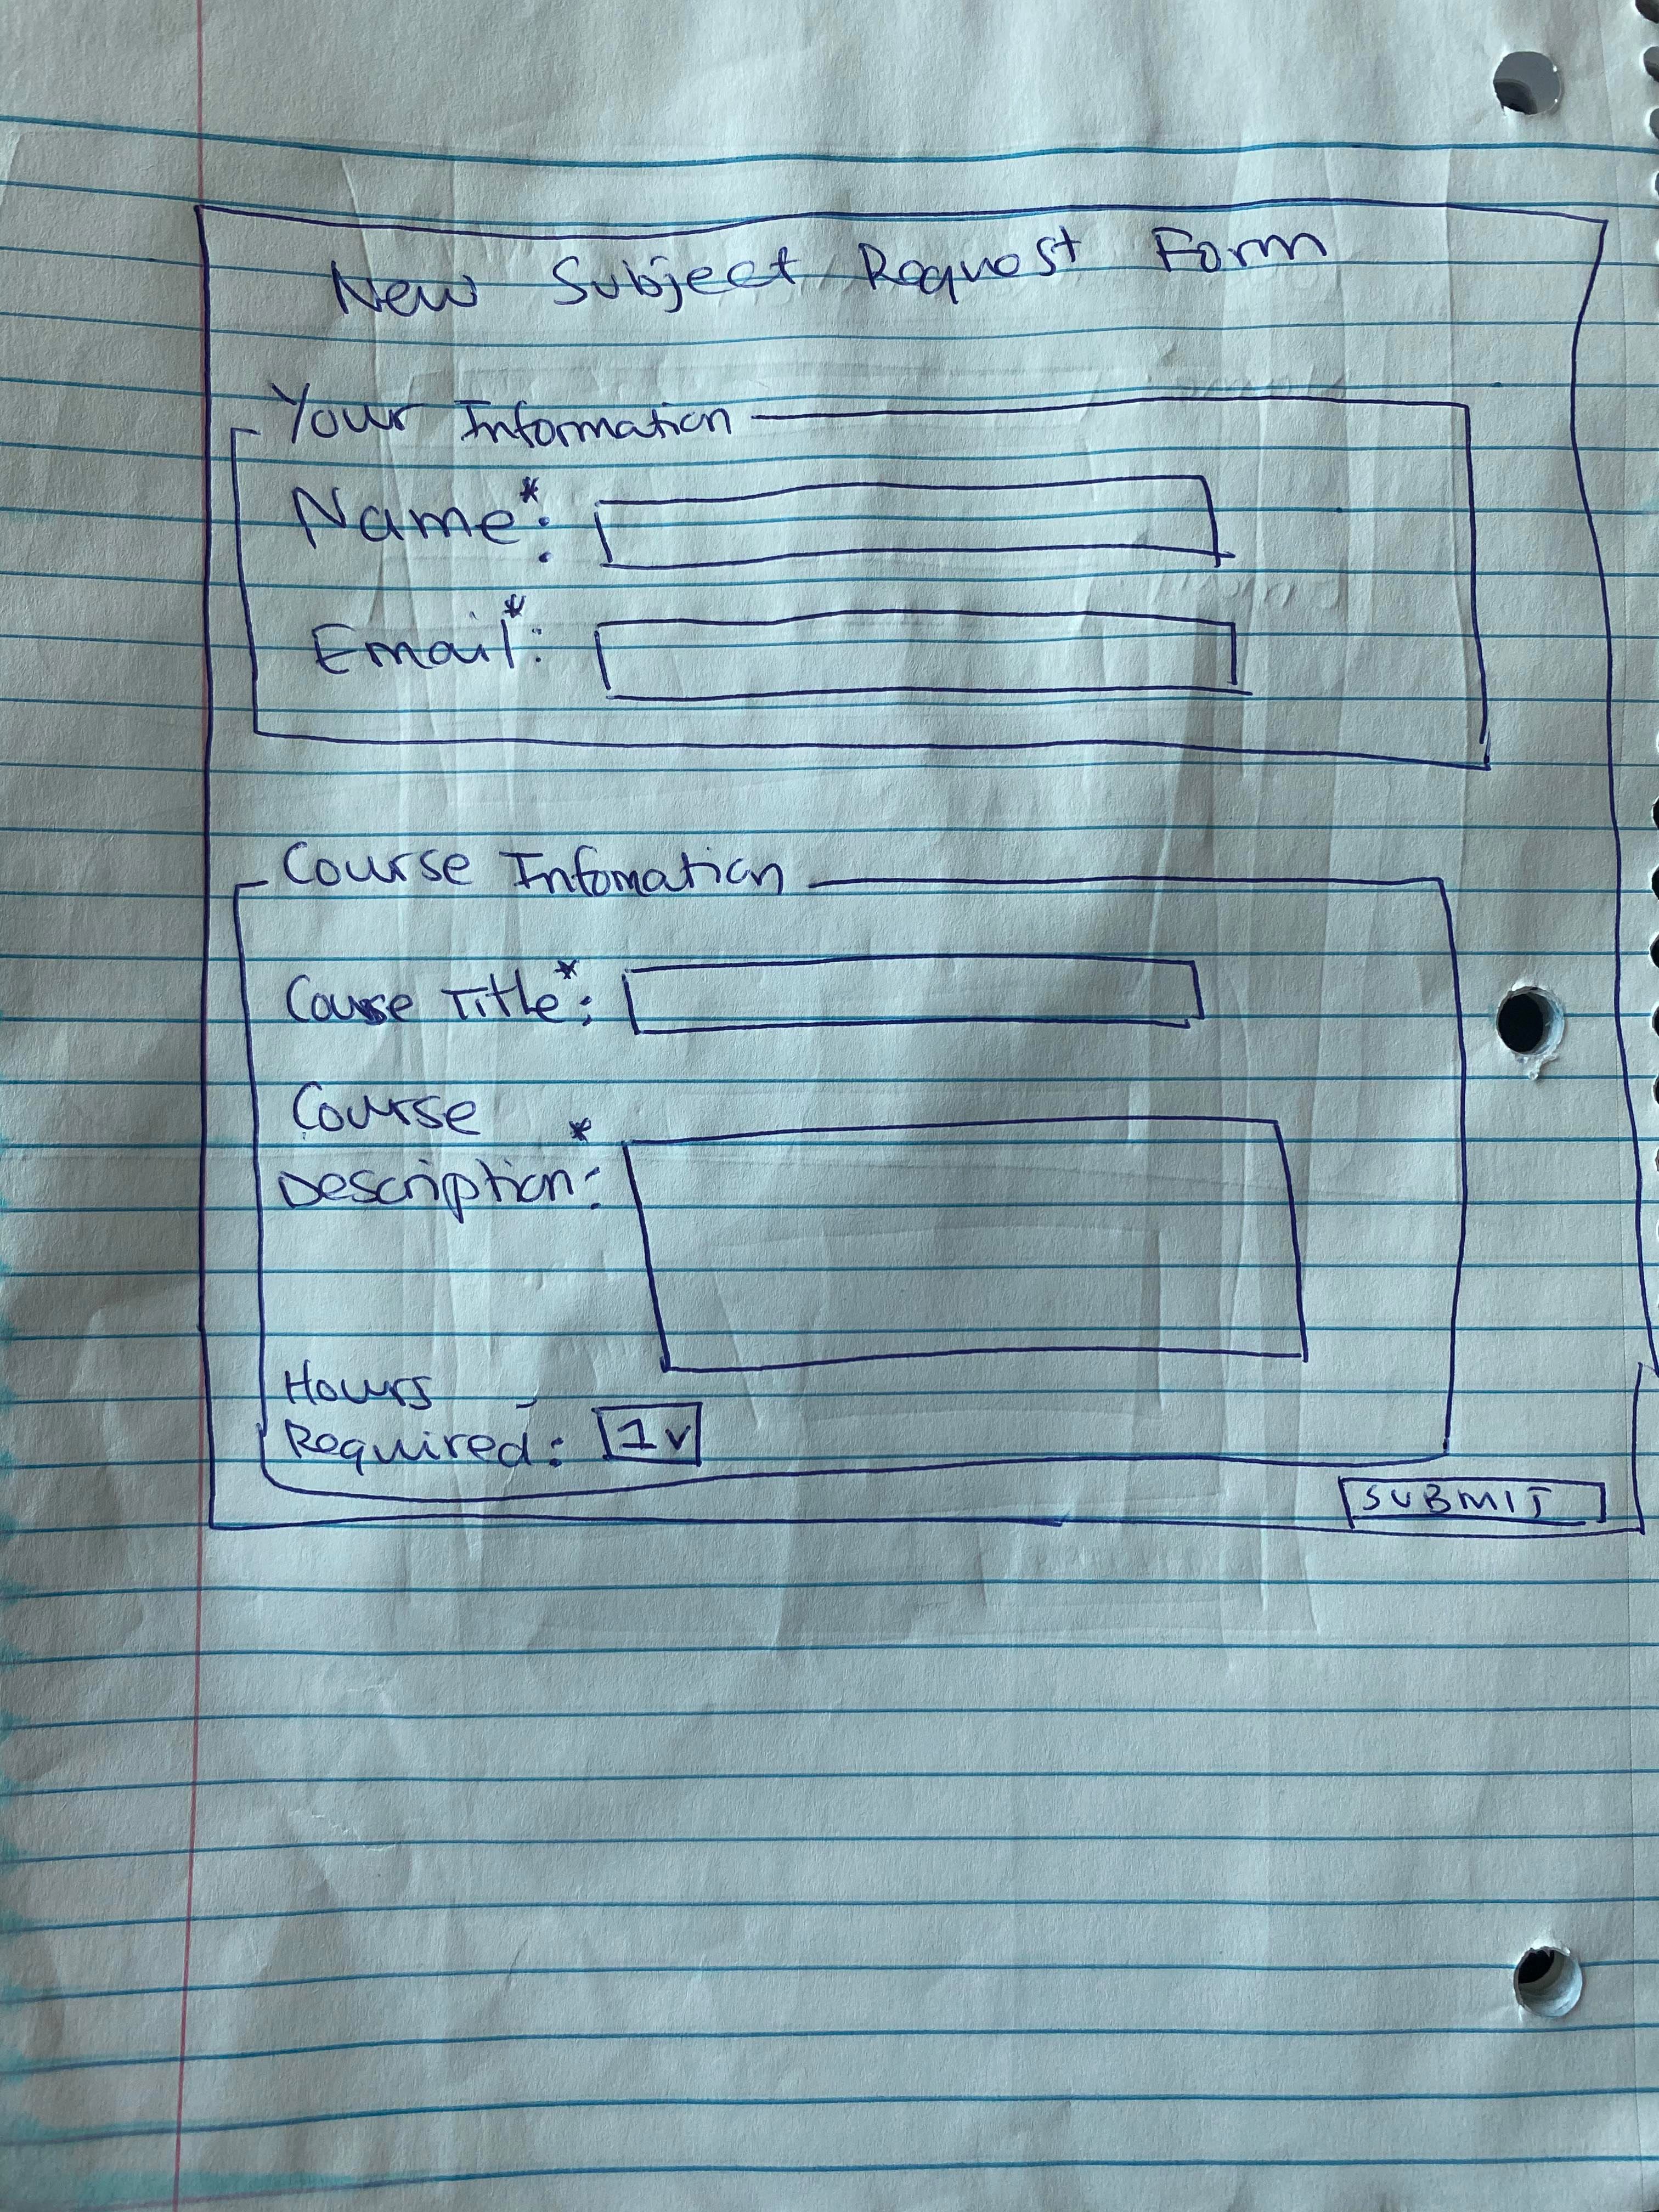 New Subject Request Form
Your Information
Name*:
Email*:
Course Infomation
Course Title*:
Course
Description*:
Hours
Required: 1 v
SUBMIT